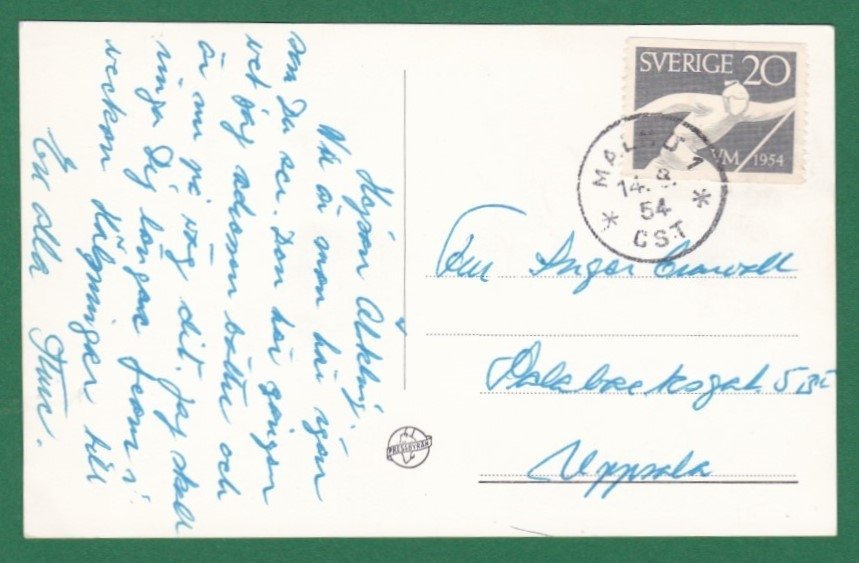 Hejsan
Nu är man här igen
som Du ser. Den här gången
vet jag adressen bättre och
är nu på väg dit. Jag skall
ringa Dig längre fram i
veckan. Hälsningar till
Er alla
SVERIGE 20
VM 1954
MALMÖ 1
14. 8.
54
CST
Fru Inger
5
Uppsala
PRESSBYRÅN